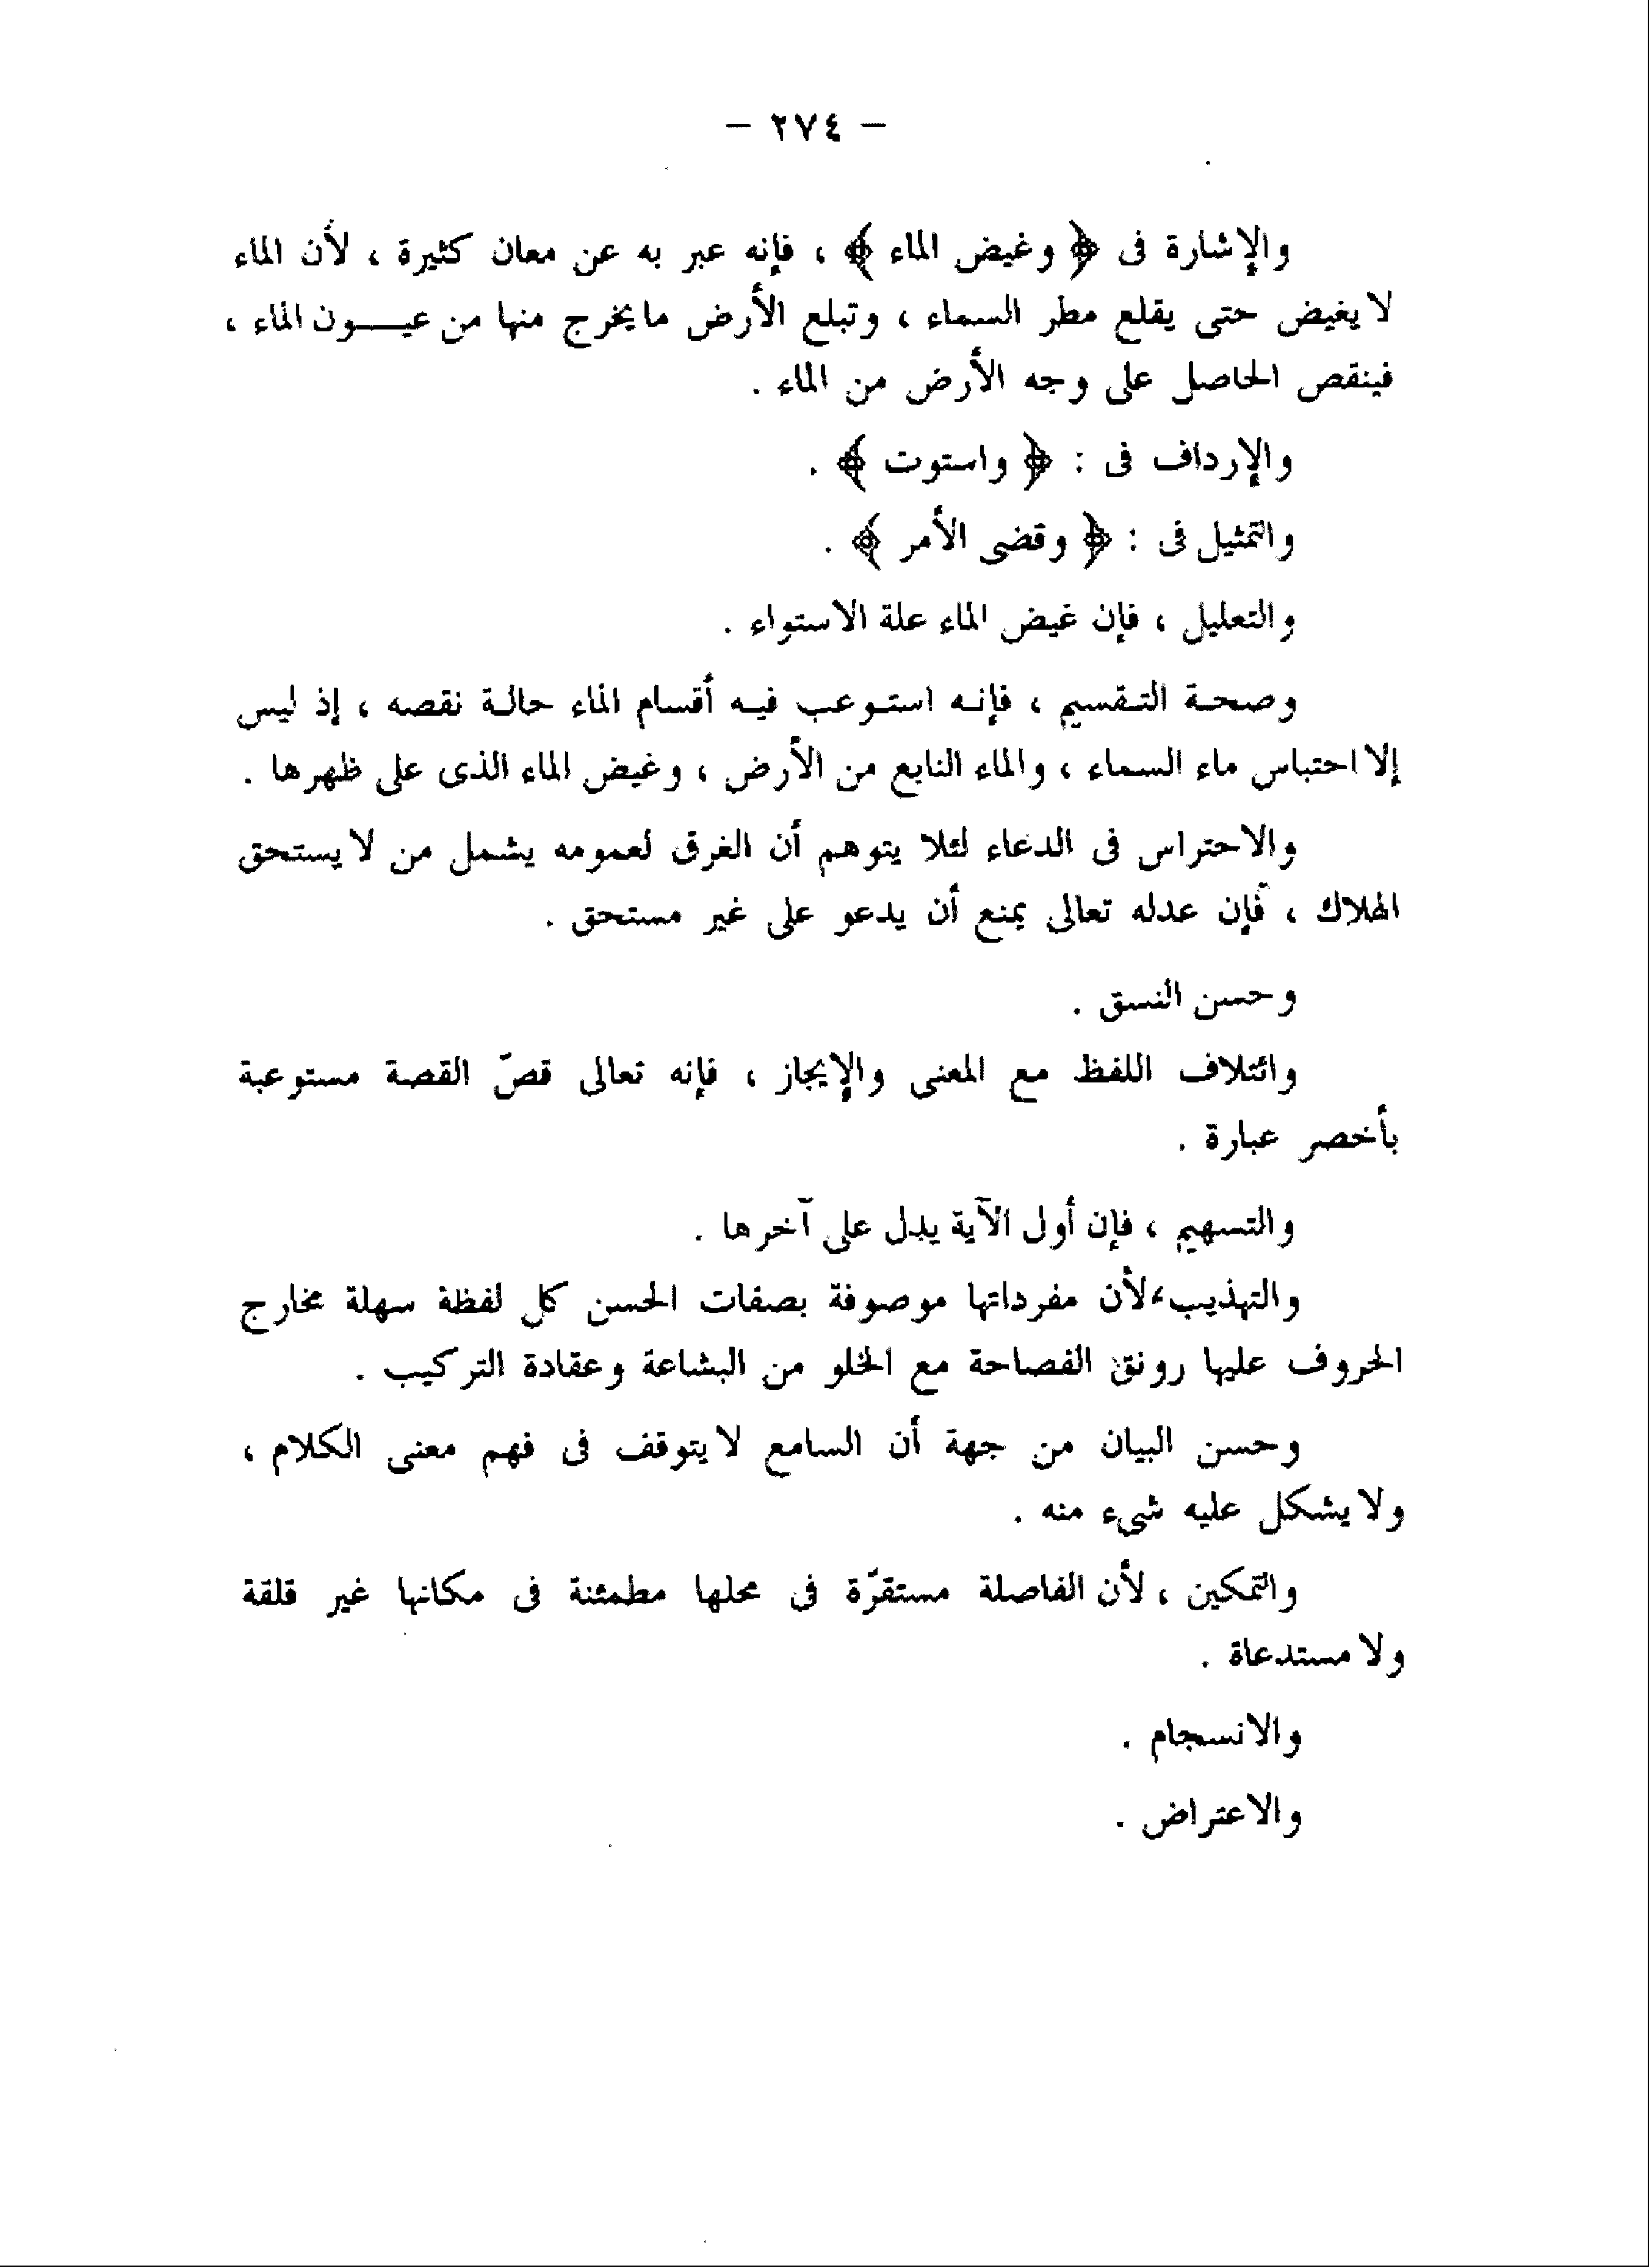 – ٢٧٤ –
والإشارة فى ﴿ وغيض الماء ﴾ ، فإنه عبر به عن معان كثيرة ، لأن الماء
لا يغيض حتى يقلع مطر السماء ، وتبلع الأرض ما يخرج منها من عيـــون الماء ،
فينقص الحاصل على وجه الأرض من الماء .
والإرداف فى : ﴿ واستوت ﴾ .
والتمثيل فى : ﴿ وقضى الأمر ﴾ .
والتعليل ، فإن غيض الماء علة الاستواء .
وصحة التقسيم ، فإنه استوعب فيه أقسام الماء حالة نقصه ، إذ ليس
إلا احتباس ماء السماء ، والماء النابع من الأرض ، وغيض الماء الذى على ظهرها .
والاحتراس فى الدعاء لئلا يتوهم أن الغرق لعمومه يشمل من لا يستحق
الهلاك ، فإن عدله تعالى يمنع أن يدعو على غير مستحق .
وحسن النسق .
وائتلاف اللفظ مع المعنى والإيجاز ، فإنه تعالى قصّ القصة مستوعبة
بأخصر عبارة .
والتسهيم ، فإن أول الآية يدل على آخرها .
والتهذيب ، لأن مفرداتها موصوفة بصفات الحسن كل لفظة سهلة مخارج
الحروف عليها رونق الفصاحة مع الخلو من البشاعة وعقادة التركيب .
وحسن البيان من جهة أن السامع لا يتوقف فى فهم معنى الكلام ،
ولا يشكل عليه شىء منه .
والتمكين ، لأن الفاصلة مستقرّة فى محلها مطمئنة فى مكانها غير قلقة
ولا مستدعاة .
والانسجام .
والاعتراض .